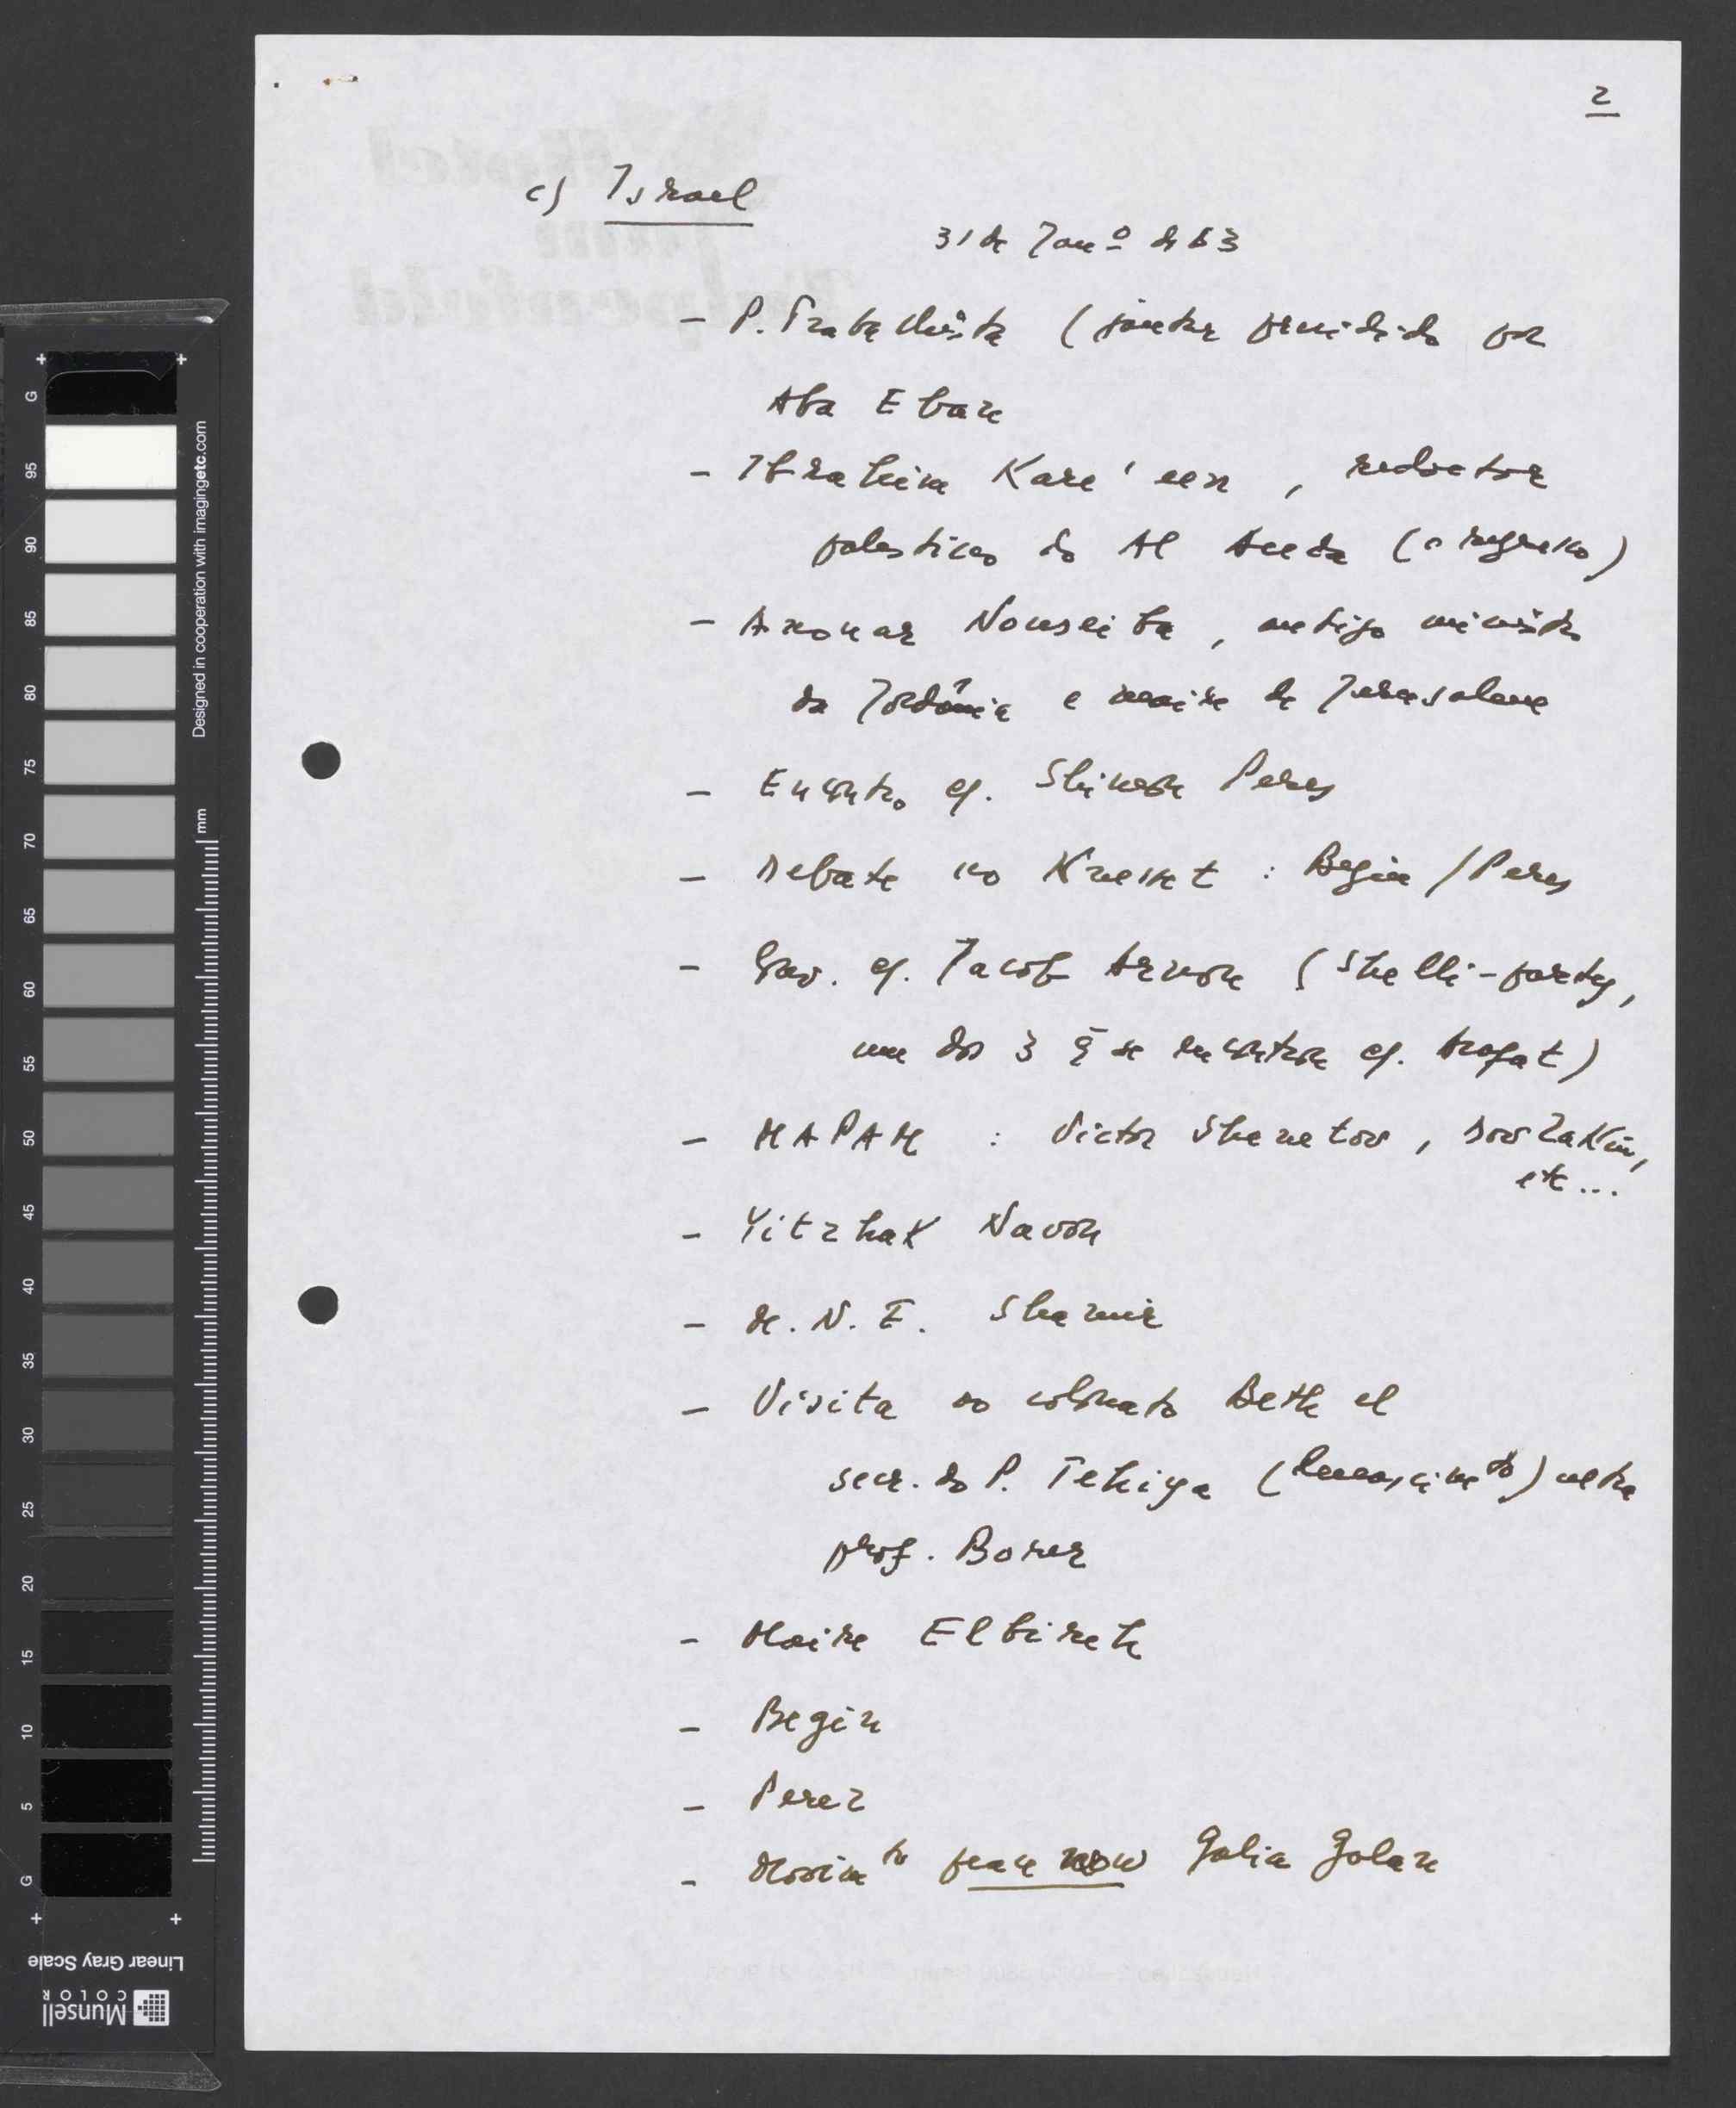 2
c) Israel
31 de Janº de 83
- P. Trabalhista (jantar presidido por
Aba Eban
- Ibrahim Kare'een, redactor
palestino do Al Awda (o regresso)
- Anouar Nouseiba, antigo ministro
da Jordânia e maire de Jerusalem
- Encontro c/. Shimon Peres
- Debate no Knesset : Begin / Peres
- c/. Jacob Arnon (Shelli-party,
um dos 3 q̄ se encontrou c/. Arafat)
- MAPAM : Victor Shemtov, Dov Zakin,
etc...
- Yitzhak Navon
- M.N.E. Shamir
- Visita ao colonato Beth el
secr. do P. Tehiya (Renascimento) ultra
prof. Boner
- Maire El bireh
- Begin
- Perez
- Movimto peace now Galia Golan
Designed in cooperation with imagingetc.com
mm
G 95 90 85 80 75 70 65 60 55 50 45 40 35 30 25 20 15 10 5 G
Linear Gray Scale
Munsell
COLOR